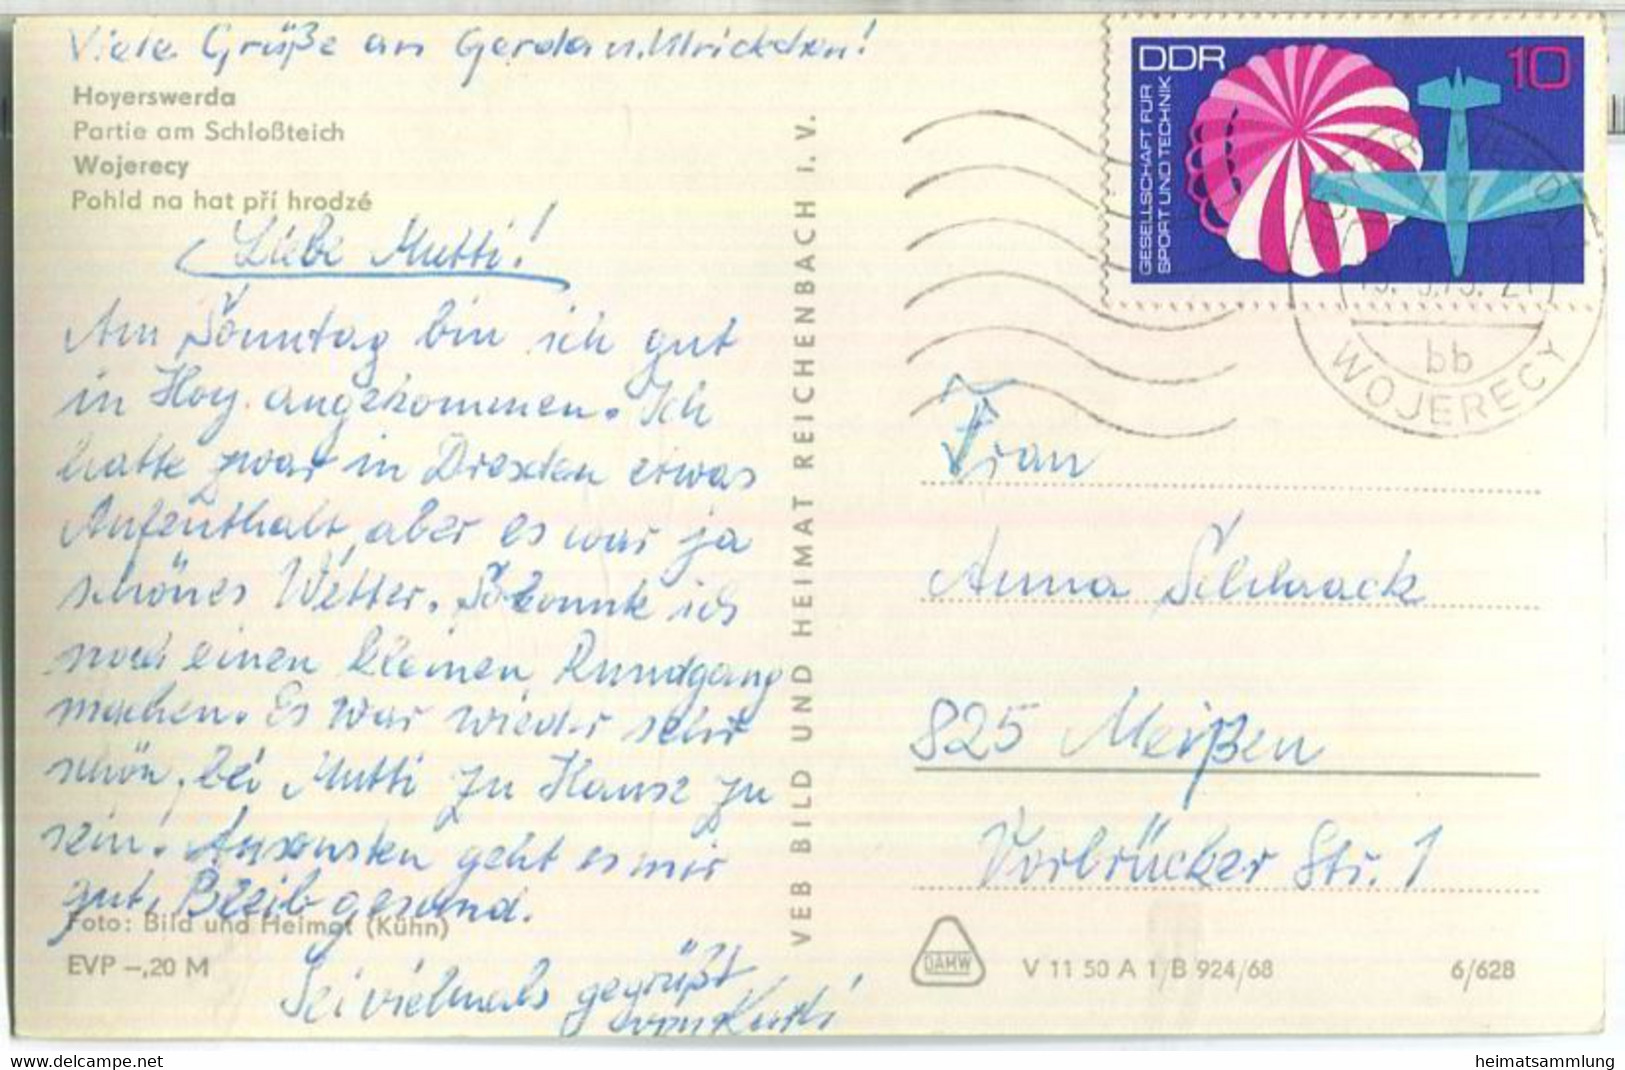 Viele Grüße an Gerda u. Ulrickchen!
Hoyerswerda
Partie am Schloßteich
Wojerecy
Pohld na hat při hrodzé
Liebe Mutti!
Am Sonntag bin ich gut
in Hoy. angekommen. Ich
hatte zwar in Dresden etwas
Aufenthalt, aber es war ja
schönes Wetter. So konnte ich
noch einen kleinen Rundgang
machen. Es war wieder sehr
schön, bei Mutti zu Hause zu
sein. Ansonsten geht es mir
gut, Bleib gesund.
Foto: Bild und Heimat (Kühn)
EVP –,20 M
Sei vielmals gegrüßt
von
VEB BILD UND HEIMAT REICHENBACH I. V.
DDR
10
GESELLSCHAFT FÜR
SPORT UND TECHNIK
77
bb
WOJERECY
Frau
Anna Schlaack
825 Meißen
Vorbrücker Str. 1
DAMW
V 11 50 A 1/B 924/68
6/628
www.delcampe.net
heimatsammlung